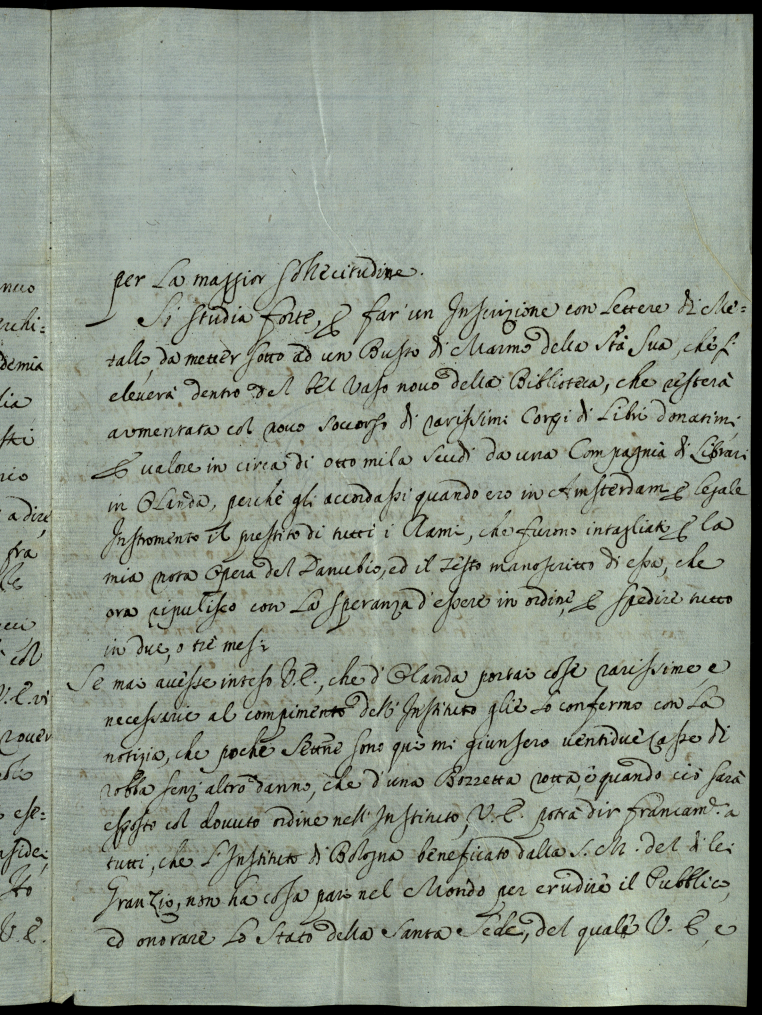 per La maggior sollecitudine.
Si studia forte, p far un Inscrizione con Lettere di Me=
tallo, da metter sotto ad un Busto di Marmo della Stà Sua, che si
eleverà dentro del bel Vaso novo della Biblioteca, che resterà
aumentata col novo soccorso di rarissimi Corpi di Libri donatimi
p valore in circa di otto mila Scudi da una Compagnia di Librari
in Olanda, perchè gli accordassi quando ero in Amsterdam p legale
Instromento il prestito di tutti i Rami, che furno intagliati p la
mia nota Opera del Danubio, ed il Testo manoscritto di essa, che
ora ripulisco con La speranza d'essere in ordine, p spedire tutto
in due, o tre mesi
Se mai avesse inteso V.E., che d'Olanda portai cose rarissime, e
necessarie al compimento dell'Instituto glie Lo confermo con La
notizia, che poche Settne sono quà mi giunsero ventidue casse di
robba senz'altro danno, che d'una Bozzetta rotta, e quando ciò sarà
esposto col dovuto ordine nell'Instituto, V.E. potrà dir francamte a
tutti, che L'Instituto di Bologna beneficato dalla S.M. del di lei
Gran Zio, non ha cosa pari nel Mondo per erudire il Pubblico,
ed onorare Lo Stato della Santa Sede, del quale V.E, e
nuo
rchi=
demia
lia
sti
rio
a dire,
fra
V.E. vi
rover
ese=
V.E.